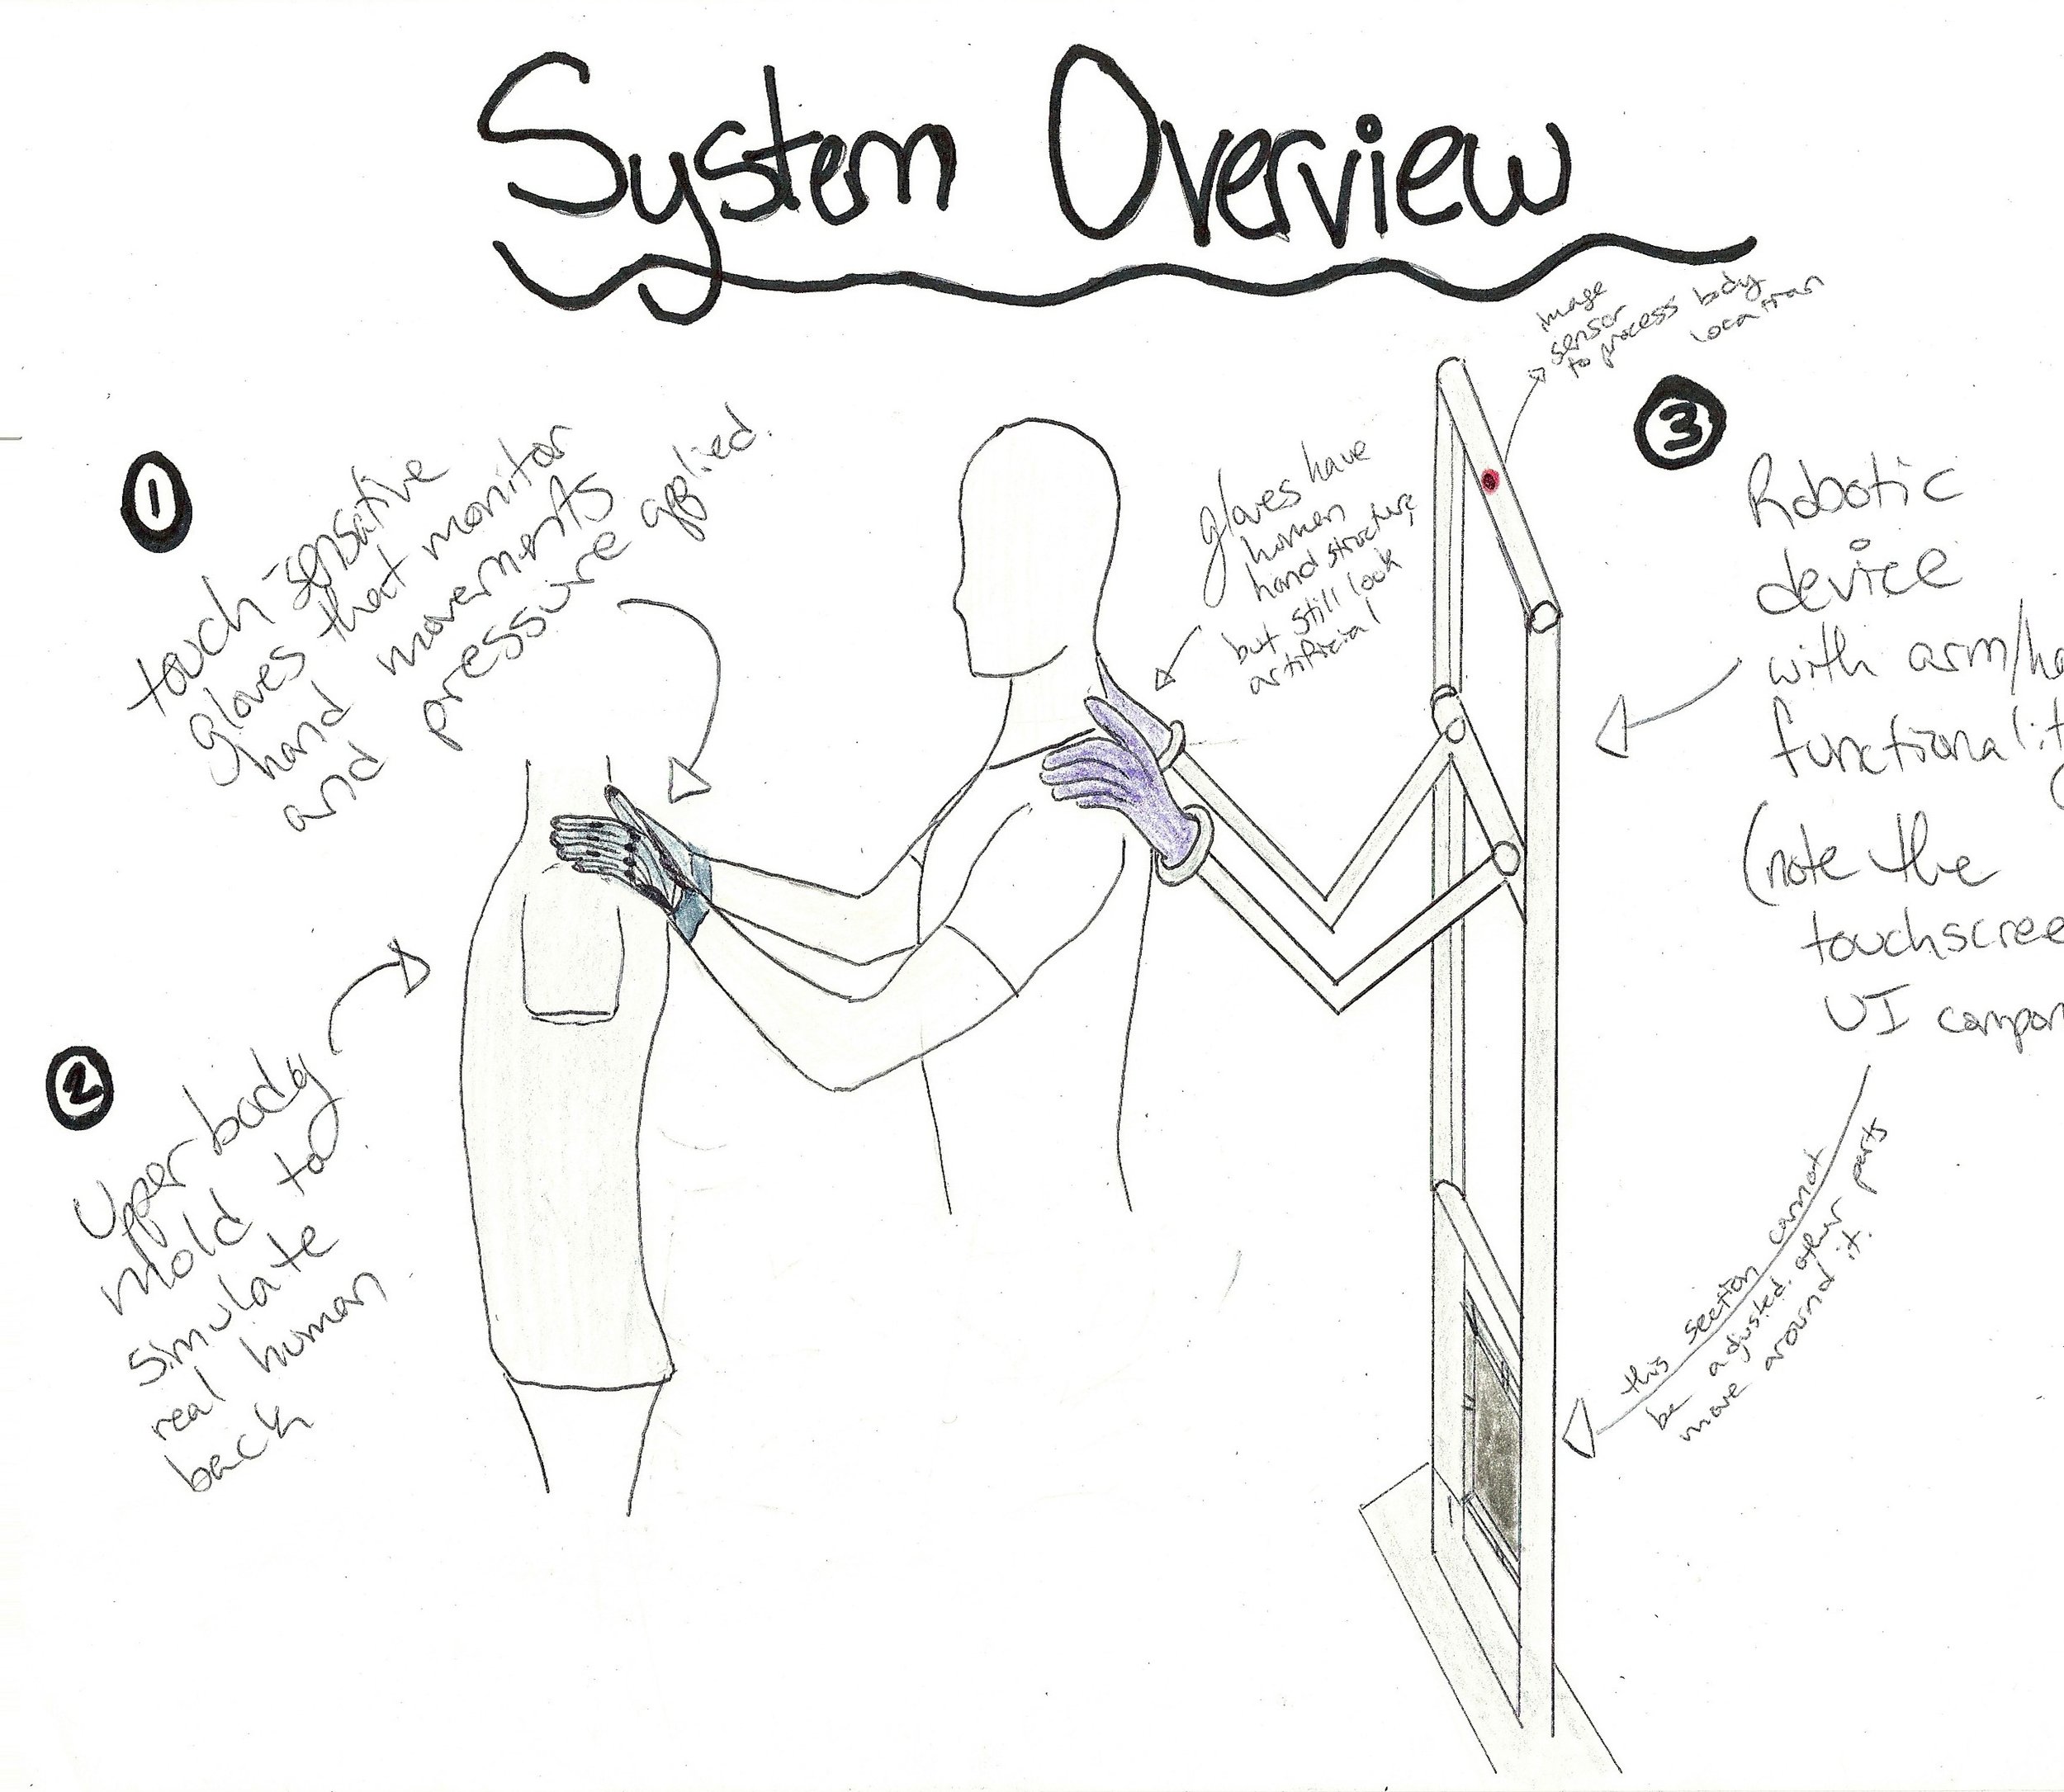 System Overview
image
sensor
to process body
location
1
touch-sensative
gloves that monitor
hand movements
and pressure applied.
gloves have
human
hand structure
but still look
artificial
3
Robotic
device
with arm/ha
functionality
(note the
touchscree
UI compon
2
Upper body
mold to
simulate
real human
back
this section cannot
be adjusted. other parts
move around it.